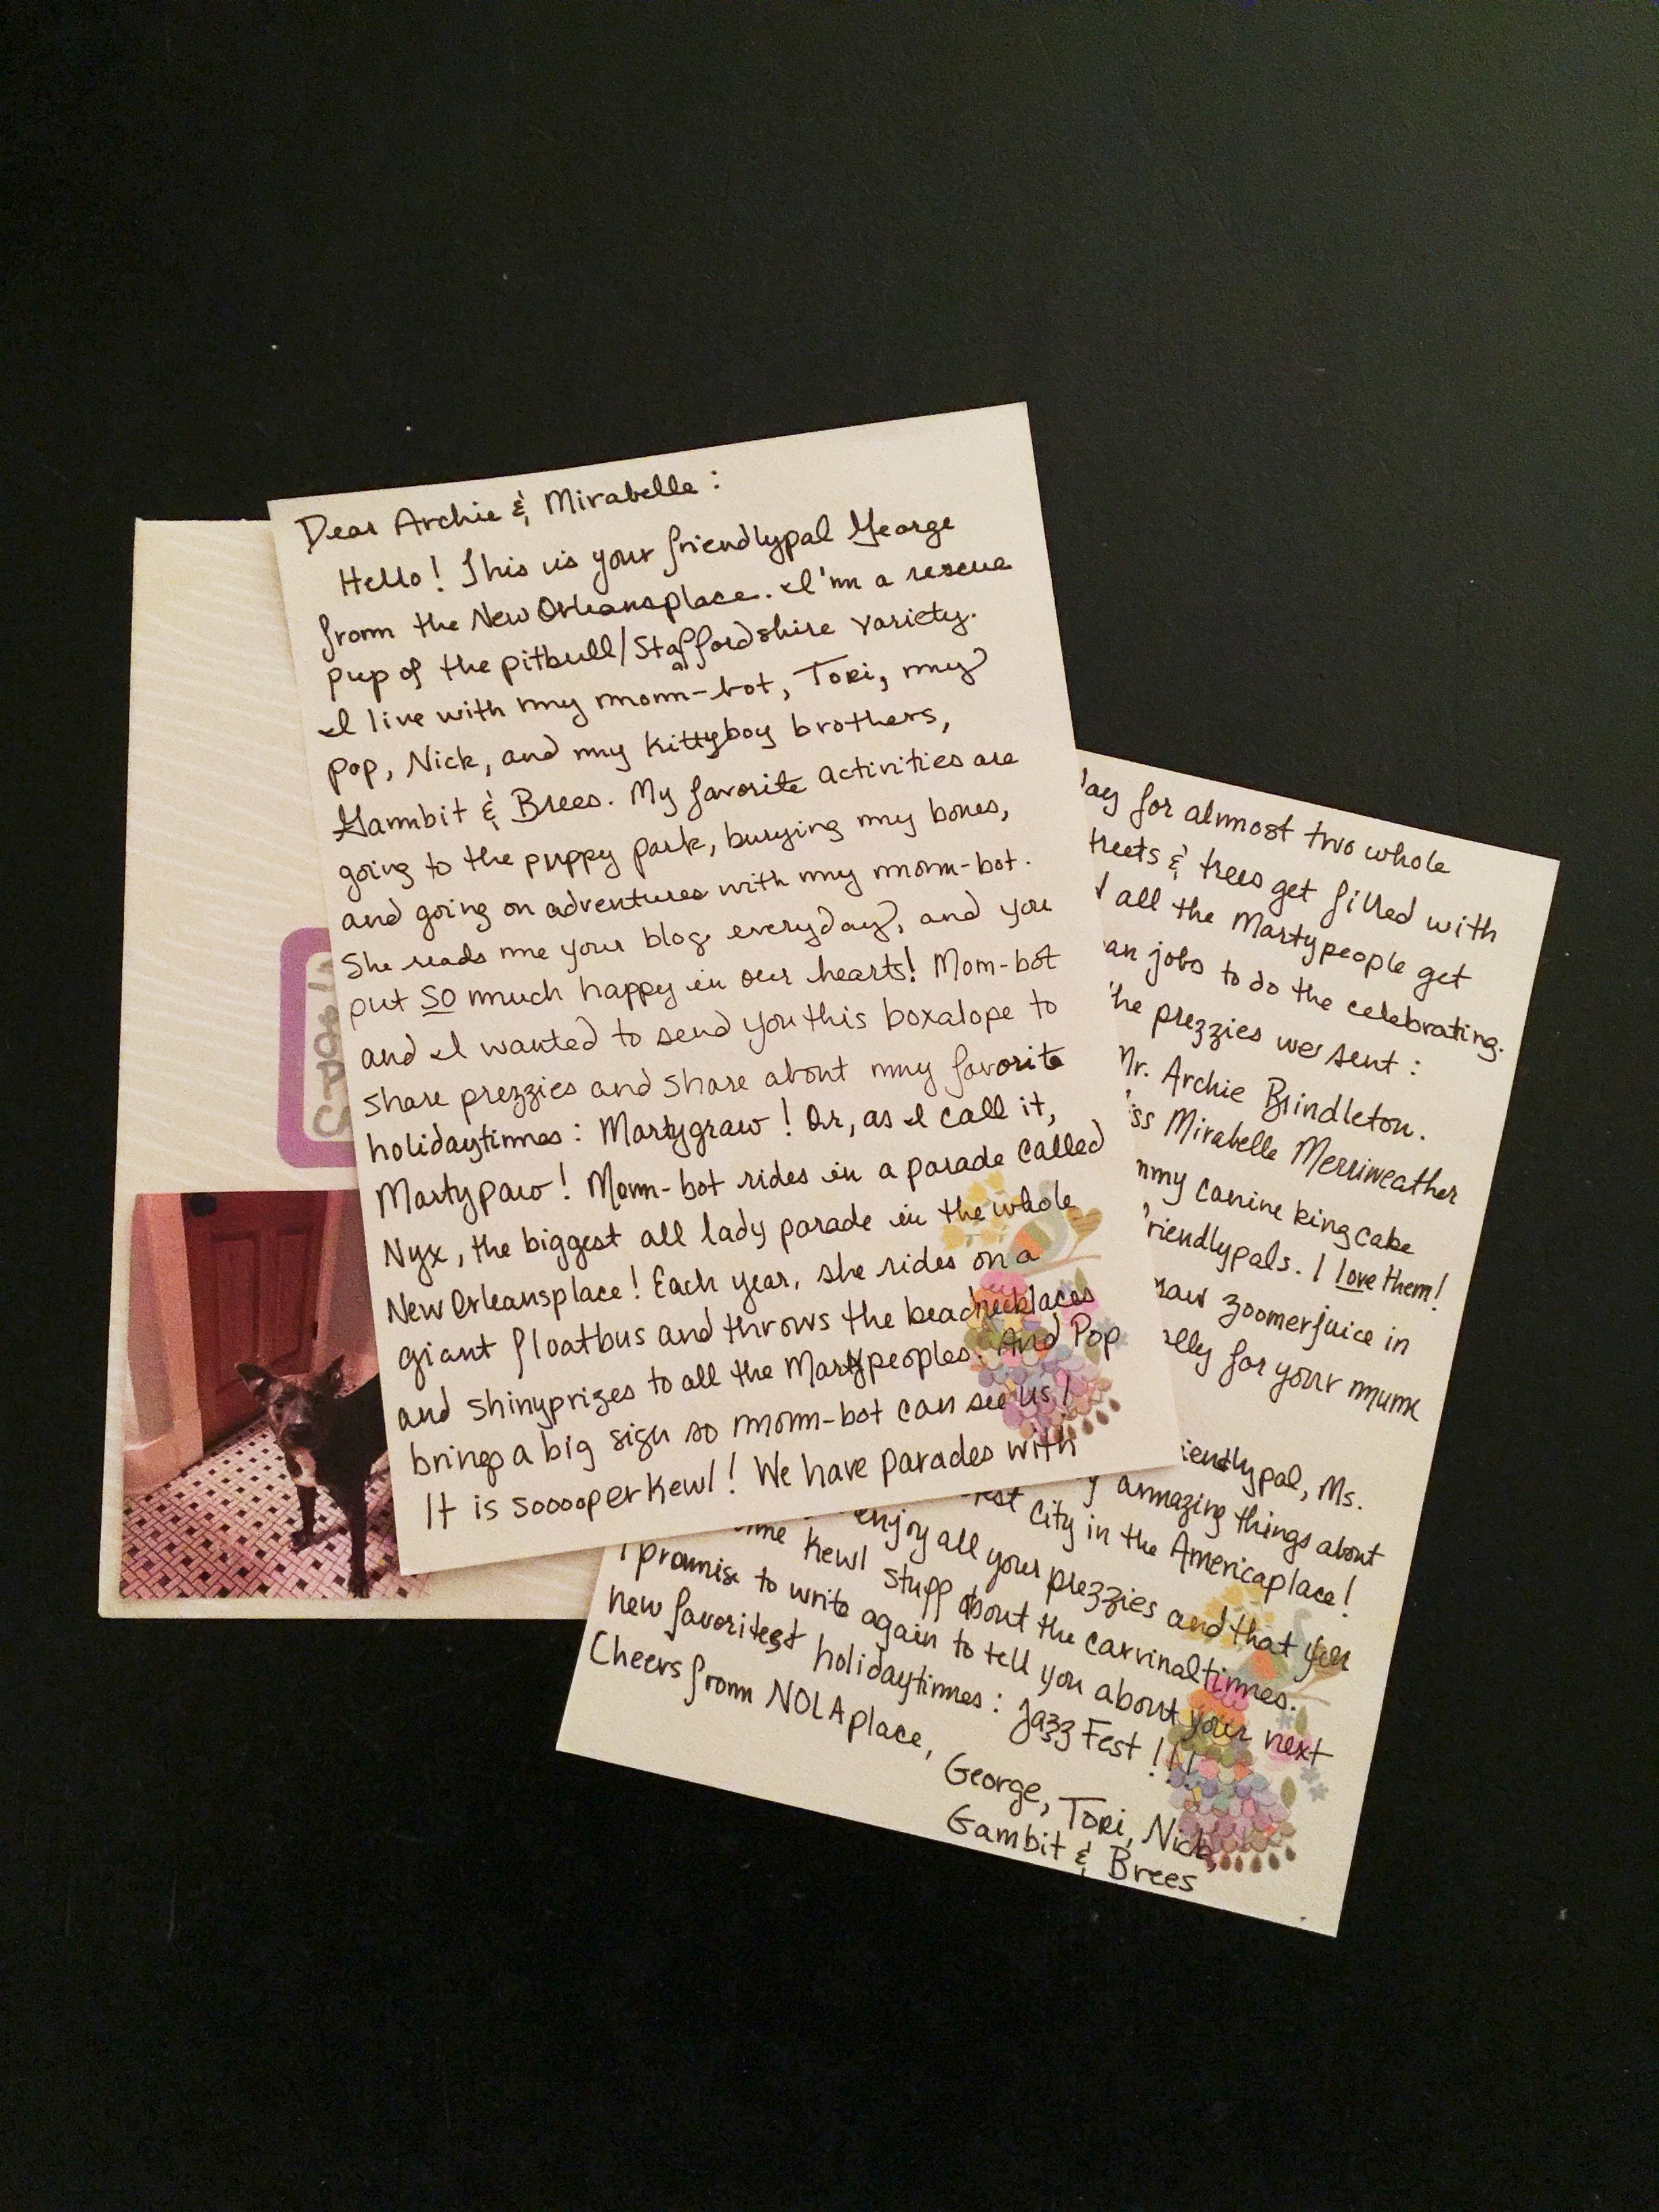 Dear Archie & Mirabelle:
Hello! This is your friendlypal George
from the NewOrleansplace. I'm a rescue
pup of the pitbull/Staffordshire variety.
I live with my mom-bot, Tori, my
pop, Nick, and my kittyboy brothers,
Gambit & Brees. My favorite activities are
going to the puppy park, burying my bones,
and going on adventures with my mom-bot.
She reads me your blog everyday, and you
put so much happy in our hearts! Mom-bot
and I wanted to send you this boxalope to
share prezzies and share about my favorite
holidaytimes: Martygraw! Or, as I call it,
Martypaw! Mom-bot rides in a parade called
Nyx, the biggest all lady parade in the whole
NewOrleansplace! Each year, she rides on a
giant floatbus and throws the beadnecklaces
and shinyprizes to all the Martypeoples. And Pop
brings a big sign so mom-bot can see us!
It is sooooperkewl! We have parades with
for almost two whole
& trees get filled with
all the Martypeople get
jobs to do the celebrating.
prezzies we sent:
Mr. Archie Brindleton.
Mirabelle Merriweather
canine kingcake
friendlypals. I love them!
zoomerjuice in
for your mume
friendlypal, Ms.
amazing things about
City in the Americaplace!
enjoy all your prezzies and that you
kewl stuff about the carvinaltimes.
I promise to write again to tell you about your next
new favoritest holidaytimes: Jazz Fest!!!
Cheers from NOLAplace,
George, Tori, Nick,
Gambit & Brees